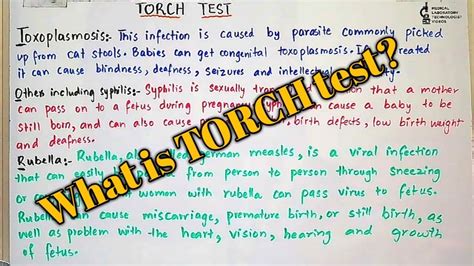 TORCH TEST
MEDICAL
LABORATORY
TECHNOLOGIST
VIDEOS
Toxoplasmosis:- This infection is caused by parasite commonly picked
up from cat stools. Babies can get congenital toxoplasmosis. If
it can cause blindness, deafness, seizures and intellectual
Other including syphilis:- Syphilis is sexually that a mother
can pass on to a fetus during cause a baby to be
still born, and can also cause birth defects, low birth weight
and deafness.
Rubella:- Rubella, measles, is a viral infection
that can from person to person through sneezing
or women with rubella can pass virus to fetus.
cause miscarriage, premature birth, or still birth, as
well as problem with the heart, vision, hearing and growth
of fetus.
What is TORCH test?